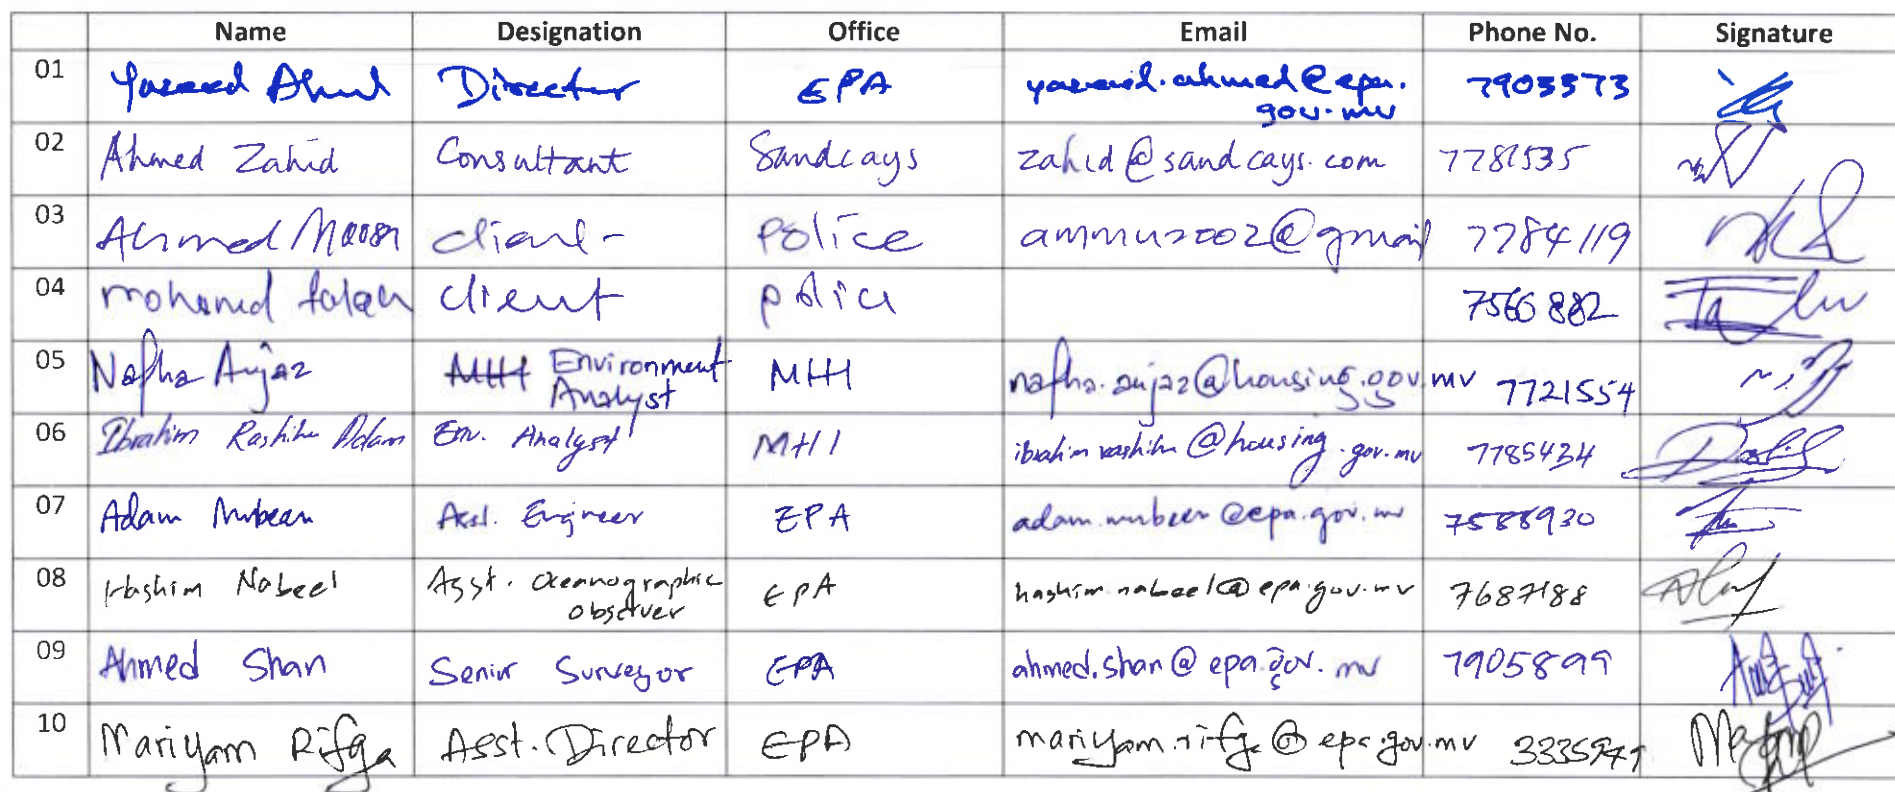 Name Designation Office Email Phone No. Signature
01 Director EPA 7903573
gov.mv
02 Ahmed Zahid Consultant Sandcays zahid@sandcays.com 7781535
03 Ahmed client police ammu2002@gmail 7784119
04 mohamed falah client police 7566882
05 Nafha Aujaz Environment MHI nafha.aujaz@housing.gov.mv 7721554
Analyst
06 Ibrahim Rashihu Adam Env. Analyst MHI ibrahim.rashihu@housing.gov.mv 7785434
07 Adam Mubeen Asst. Engineer EPA adam.mubeen@epa.gov.mv 7588930
08 Hashim Nabeel Asst. Oceanographic EPA hashim.nabeel@epa.gov.mv 7687188
observer
09 Ahmed Shan Senior Surveyor EPA ahmed.shan@epa.gov.mv 7905899
10 Mariyam Rifga Asst. Director EPA mariyam.rifga@epa.gov.mv 3335949